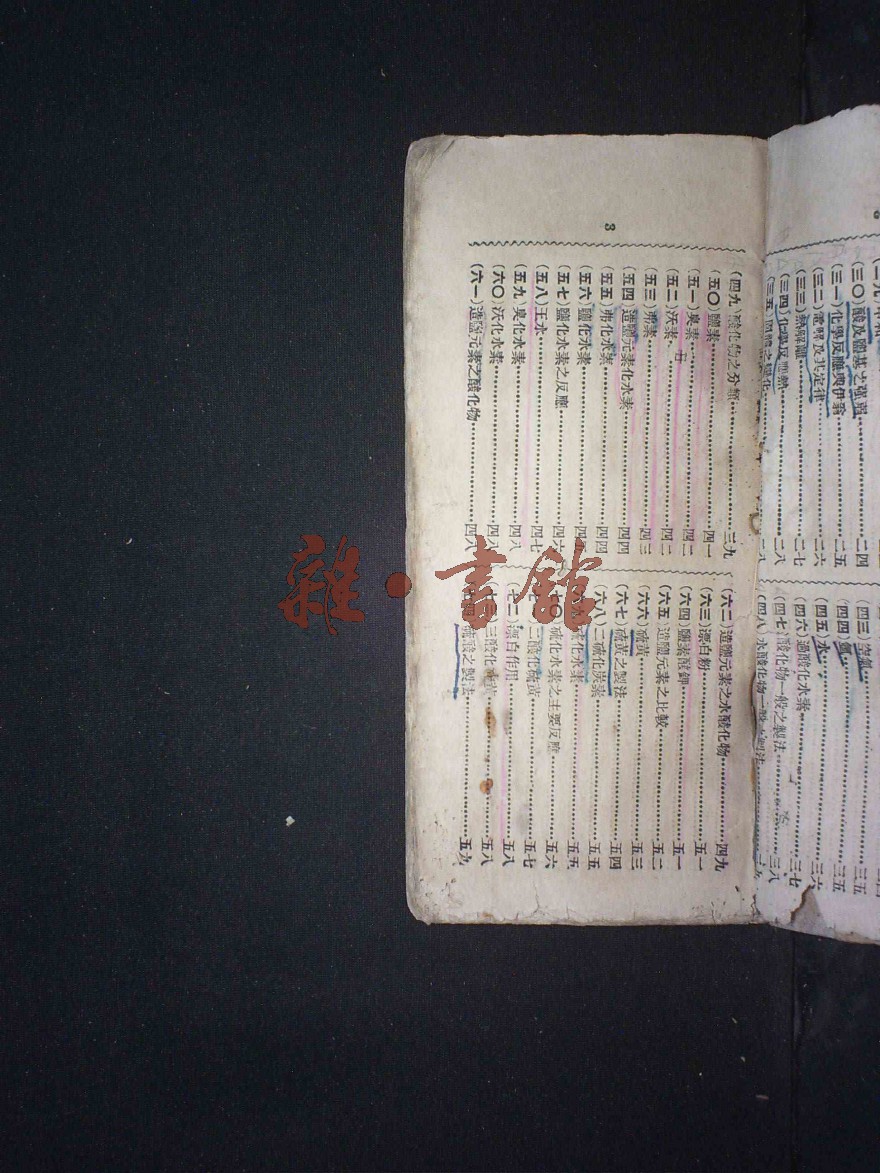 3
(四九)酸化物之分類…………三九
(五〇)鹽素…………四一
(五一)臭素…………四二
(五二)沃素…………四二
(五三)弗素…………四三
(五四)造鹽元素化水素…………四四
(五五)弗化水素…………四四
(五六)鹽化水素…………四
(五七)鹽化水素之反應…………四六
(五八)王水…………四七
(五九)臭化水素…………四八
(六〇)沃化水素…………四八
(六一)造鹽元素之酸化物…………四八
(六二)造鹽元素之水酸化物…………四九
(六三)漂白粉…………五一
(六四)鹽素酸鉀…………五一
(六五)造鹽元素之比較…………五二
(六六)硫黄…………五三
(六七)硫黄之製法…………五四
(六八)二硫化炭素…………五五
(六九)硫化水素…………五五
(七〇)硫化水素之主要反應…………五六
二酸化硫黄…………五七
(七二)漂白作用…………五八
三酸化硫黄…………五八
硫酸之製法…………五九
(三〇)酸及鹽基之强弱…………二四
(三一)化學反應與伊翁…………二五
(三二)電解及其定律…………二六
(三三)熱解離…………二七
(三四)化學反應熱…………二八
(三五)固體之變化…………二八
(四三)空氣…………三五
(四四)氫…………三五
(四五)水…………三六
(四六)過酸化水素…………三七
(四七)酸化物一般之製法…………三八
(四八)水酸化物一般之製法…………三九
雜·書館